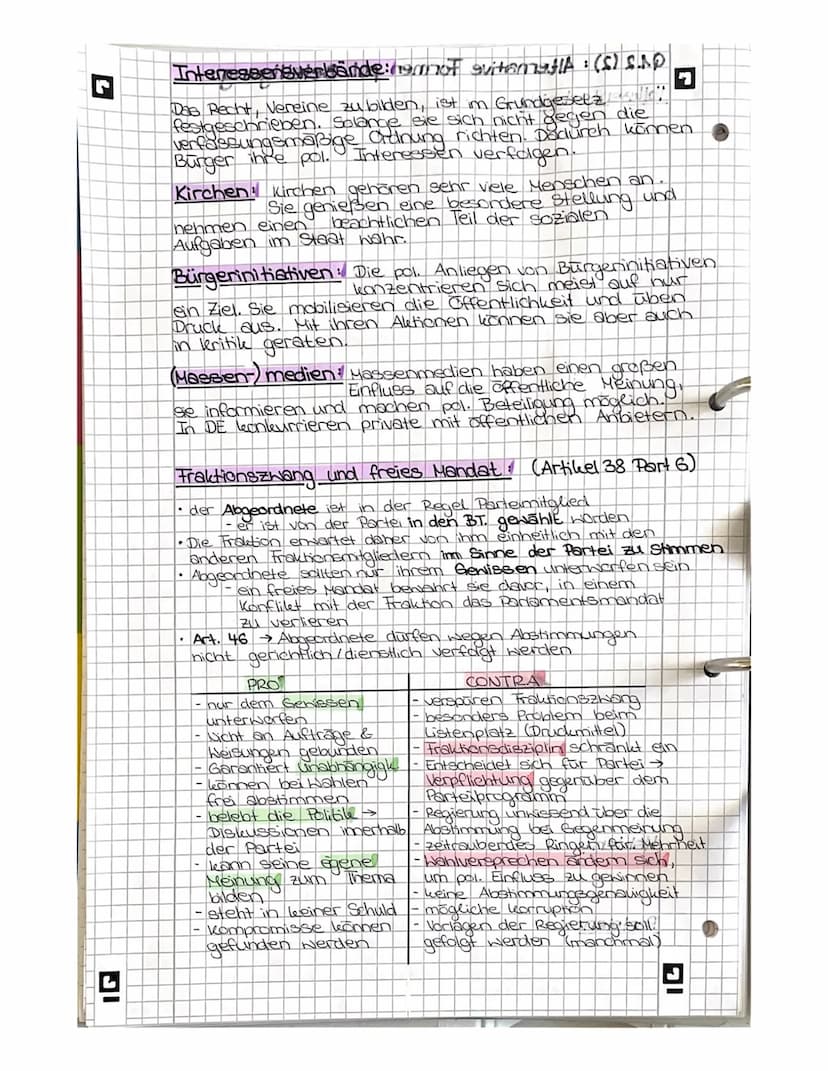 Interessensverbände:
Das Recht, Vereine zu bilden, ist im Grundgesetz
festgeschrieben. Solange sie sich nicht gegen die
verfassungsmäßige Ordnung richten. Dadurch können
Bürger ihre pol. Interessen verfolgen.
Kirchen: Kirchen gehören sehr viele Menschen an.
Sie genießen eine besondere Stellung und
nehmen einen beachtlichen Teil der sozialen
Aufgaben im Staat wahr.
Bürgerinitiativen: Die pol. Anliegen von Bürgerinitiativen
konzentrieren sich meist auf nur
ein Ziel. Sie mobilisieren die Öffentlichkeit und üben
Druck aus. Mit ihren Aktionen können sie aber auch
in Kritik geraten.
(Massen-) medien: Massenmedien haben einen großen
Einfluss auf die öffentliche Meinung,
se informieren und machen pol. Beteiligung möglich.
In DE konkurrieren private mit öffentlichen Anbietern.
Fraktionszwang und freies Mandat: (Artikel 38 Part 6)
• der Abgeordnete ist in der Regel Parteimitglied
- er ist von der Partei in den BT. gewählt worden
• Die Fraktion erwartet daher von ihm einheitlich mit den
anderen Fraktionsmitgliedern im Sinne der Partei zu stimmen
• Abgeordnete sollten nur ihrem Gewissen unterworfen sein
- ein freies Mandat bewahrt sie davor, in einem
Konflikt mit der Fraktion das Parlamentsmandat
zu verlieren
• Art. 46 → Abgeordnete dürfen wegen Abstimmungen
nicht gerichtlich/dienstlich verfolgt werden
PRO
- nur dem Gewissen
unterworfen
- Nicht an Aufträge &
Weisungen gebunden
- Garantiert Unabhängigk
- können bei Wahlen
frei abstimmen
- belebt die Politik →
Diskussionen innerhalb
der Partei
- kann seine eigene
Meinung zum Thema
bilden
- steht in keiner Schuld
- Kompromisse können
gefunden werden
CONTRA
- verspüren Fraktionszwang
- besonders Problem beim
Listenplatz (Druckmittel)
- Fraktionsdisziplin schränkt ein
- Entscheidet sich für Partei →
Verpflichtung gegenüber dem
Parteiprogramm
- Regierung unwissend über die
Abstimmung bei Gegenmeinung
- zeitraubendes Ringen für Mehrheit
- Wahlversprechen ändern sich,
um pol. Einfluss zu gewinnen
- keine Abstimmungsgenauigkeit
- mögliche Korruption
- Vorlagen der Regierung soll
gefolgt werden (manchmal)